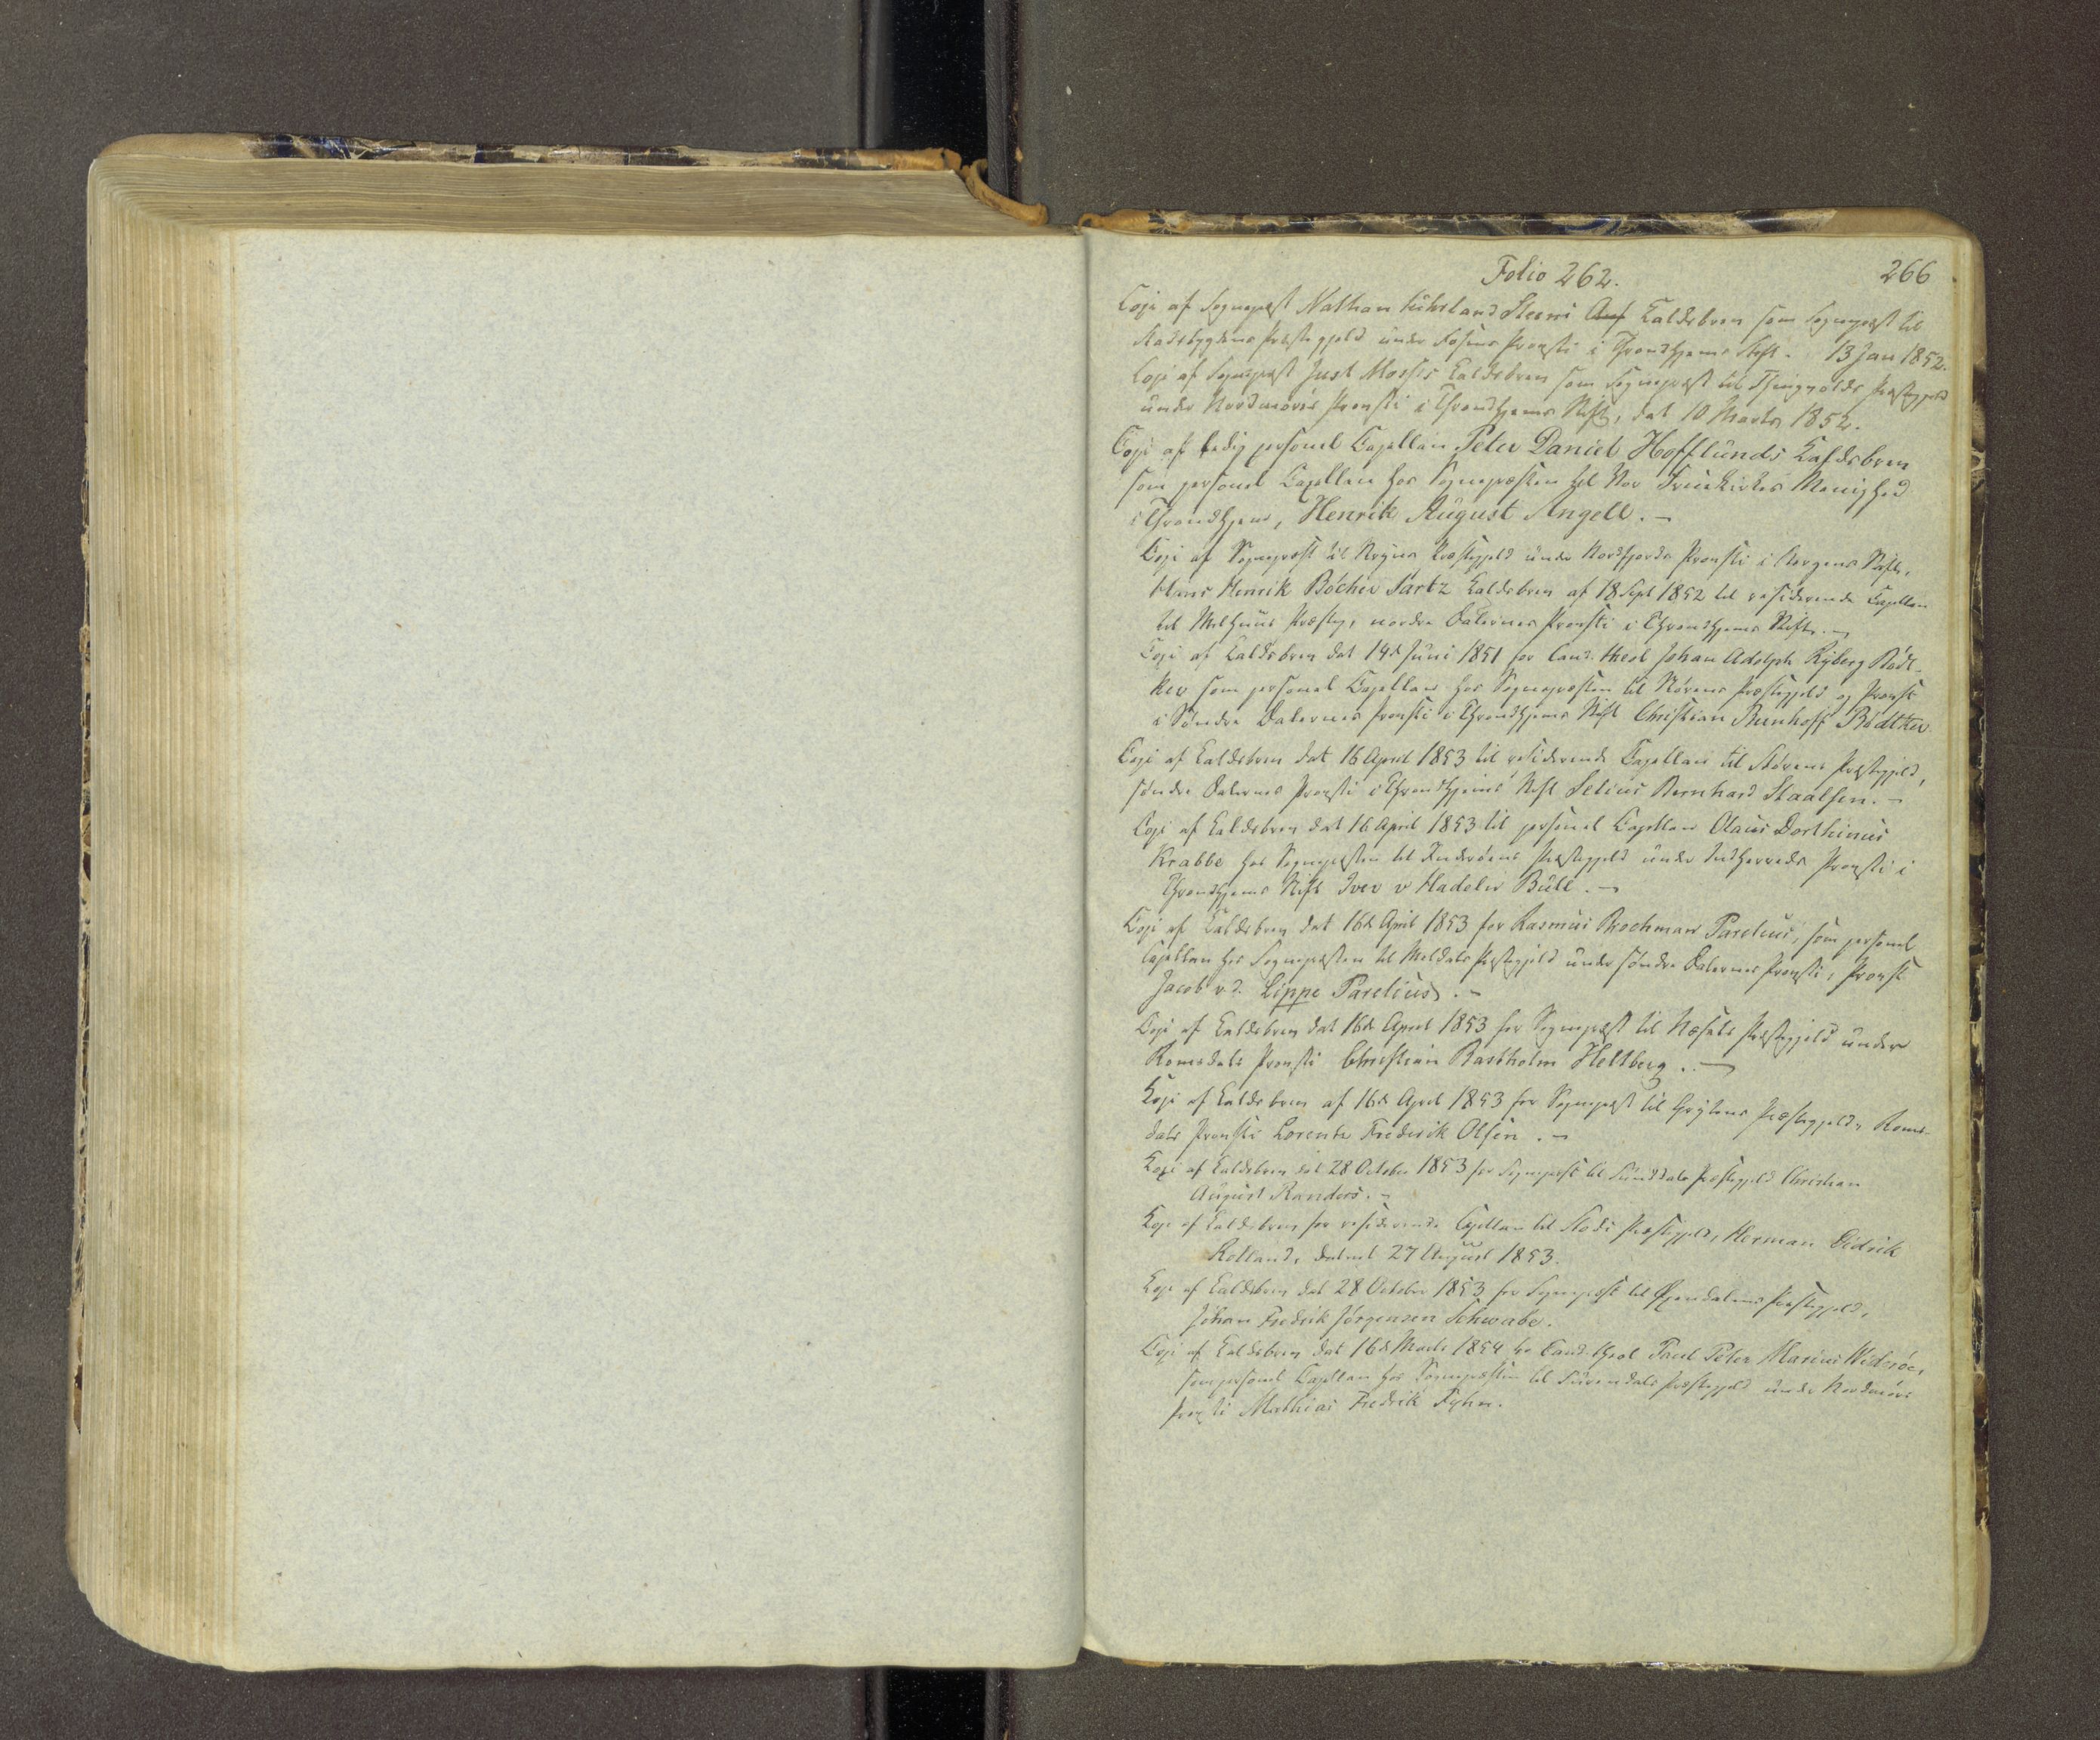 Folio 262.
266
Copi af Sognepræst Nathan Steens Kaldsbrev som Sognepræst til
Stadsbygdens Præstegjeld under Fosens Provsti i Throndhjems Stift. 13 Jan 1852.
Copi af Sognepræst Just Kaldsbrev som Sognepræst til Thingvolds Præstegjeld
under Nordmøres Provsti i Throndhjems Stift, dat 10 Marts 1852.
Copi af ledig personel Capellan Peter Daniel Hofflunds Kaldsbrev
som personel Capellan hos Sognepræsten til Vor Fruekirkes Menighed
i Throndhjem, Henrik August Angell. -
Copi af Sognepræst til Præstegjeld under Nordfjords Provsti i Bergens Stift,
Hans Henrik Bøcher Sartz Kaldsbrev af 18 Sept 1852 til residerende Capellan
til Melhuus Præsteg, nordre Dalernes Provsti i Throndhjems Stift. -
Copi af Kaldsbrev dat 14d Juni 1851 for Cand. theol Johan Adolph Ryberg Bødt-
ker som personel Capellan hos Sognepræsten til Størens Præstegjeld og Provst
i Søndre Dalernes Provsti i Throndhjems Stift Christian Bødtker.
Copi af Kaldsbrev dat 16 April 1853 til residerende Capellan til Størens Præstegjeld,
søndre Dalernes Provsti i Throndhjems Stift Selius Bernhard Staalsen. -
Copi af Kaldsbrev dat 16 April 1853 til personel Capellan Olaus Dorthinus
Krabbe hos Sognepræsten til Inderøens Præstegjeld under Indherreds Provsti i
Throndhjems Stift Iver v Hadeln Bull. -
Copi af Kaldsbrev dat 16d April 1853 for Rasmus Brochman Parelius, som personel
Capellan hos Sognepræsten til Meldals Præstegjeld under søndre Dalernes Provsti, Provst
Jacob v. d. Lippe Parelius. -
Copi af Kaldsbrev dat 16d April 1853 for Sognepræst til Næssets Præstegjeld under
Romsdals Provsti Christian Bastholm Heltberg. -
Kopi af Kaldsbrev af 16d April 1853 for Sognepræst til Grytens Præstegjeld, Roms-
dals Provsti Lorentz Frederik Olsen. -
Kopi af Kaldsbrev dat 28 October 1853 for Sognepræst til Sunddals Præstegjeld Christian
August Randers. -
Kopi af Kaldsbrev for residerende Capellan til Stods Præstegjeld, Herman Didrik
Rolland, dateret 27 August 1853.
Kopi af Kaldsbrev dat 28 October 1853 for Sognepræst til Præstegjeld,
Johan Fredrik Jørgensen Schwabe.
Copi af Kaldsbrev dat 16d Marts 1854 for Cand. theol Paul Peter Marius Widerøe,
som personel Capellan hos Sognepræsten til Surendals Præstegjeld under Nordmøres
Provsti Mathias Fredrik Fyhn.